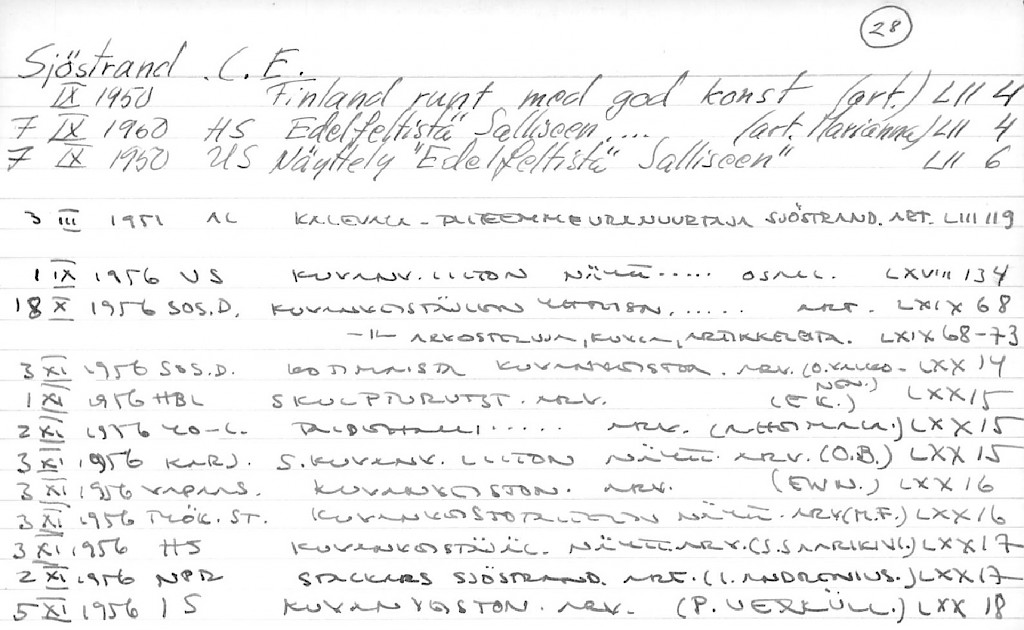 28
Sjöstrand C. E.
IX 1950 Finland runt med god konst (art.) LII 4
7 IX 1950 HS Edelfeltistä Salliseen.... (art. Marianna) LII 4
7 IX 1950 US Näyttely "Edelfeltistä Salliseen" LII 6
3 III 1951 AL KALEVALA-TAITEEMME URANUURTAJA SJÖSTRAND. ART. LIII 119
1 IX 1956 US KUVANV. LIITON NÄYTT..... OSALL. LXVIII 134
18 X 1956 SOS.D. KUVANVEISTÄJÄLIITON ...... ART. LXIX 68
-"- ARVOSTELUJA, KUVIA, ARTIKKELEITA. LXIX 68-73
3 XI 1956 SOS.D. KOTIMAISTA KUVANVEISTOA. ARV. (O. VALKONEN.) LXX 14
1 XI 1956 HBL SKULPTURUTST. ARV. (E K.) LXX 15
2 XI 1956 TAIDEHALLI...... ARV. (A. HOIMALA.) LXX 15
3 XI 1956 KARJ. S. KUVANV. LIITON NÄYTT. ARV. (O.B.) LXX 15
3 XI 1956 VAPAA S. KUVANVEISTON. ARV. (EWN.) LXX 16
3 XI 1956 TYÖK. ST. KUVANVEISTOTAITEEN NÄYTT. ARV (M.F.) LXX 16
3 XI 1956 HS KUVANVEISTÄJÄL. NÄYTT. ARV. (S. SAARIKIVI.) LXX 17
2 XI 1956 NPR STACKARS SJÖSTRAND. ART. (I. ANDRONIUS.) LXX 17
5 XI 1956 IS KUVANVEISTON. ARV. (P. UEXKÜLL.) LXX 18